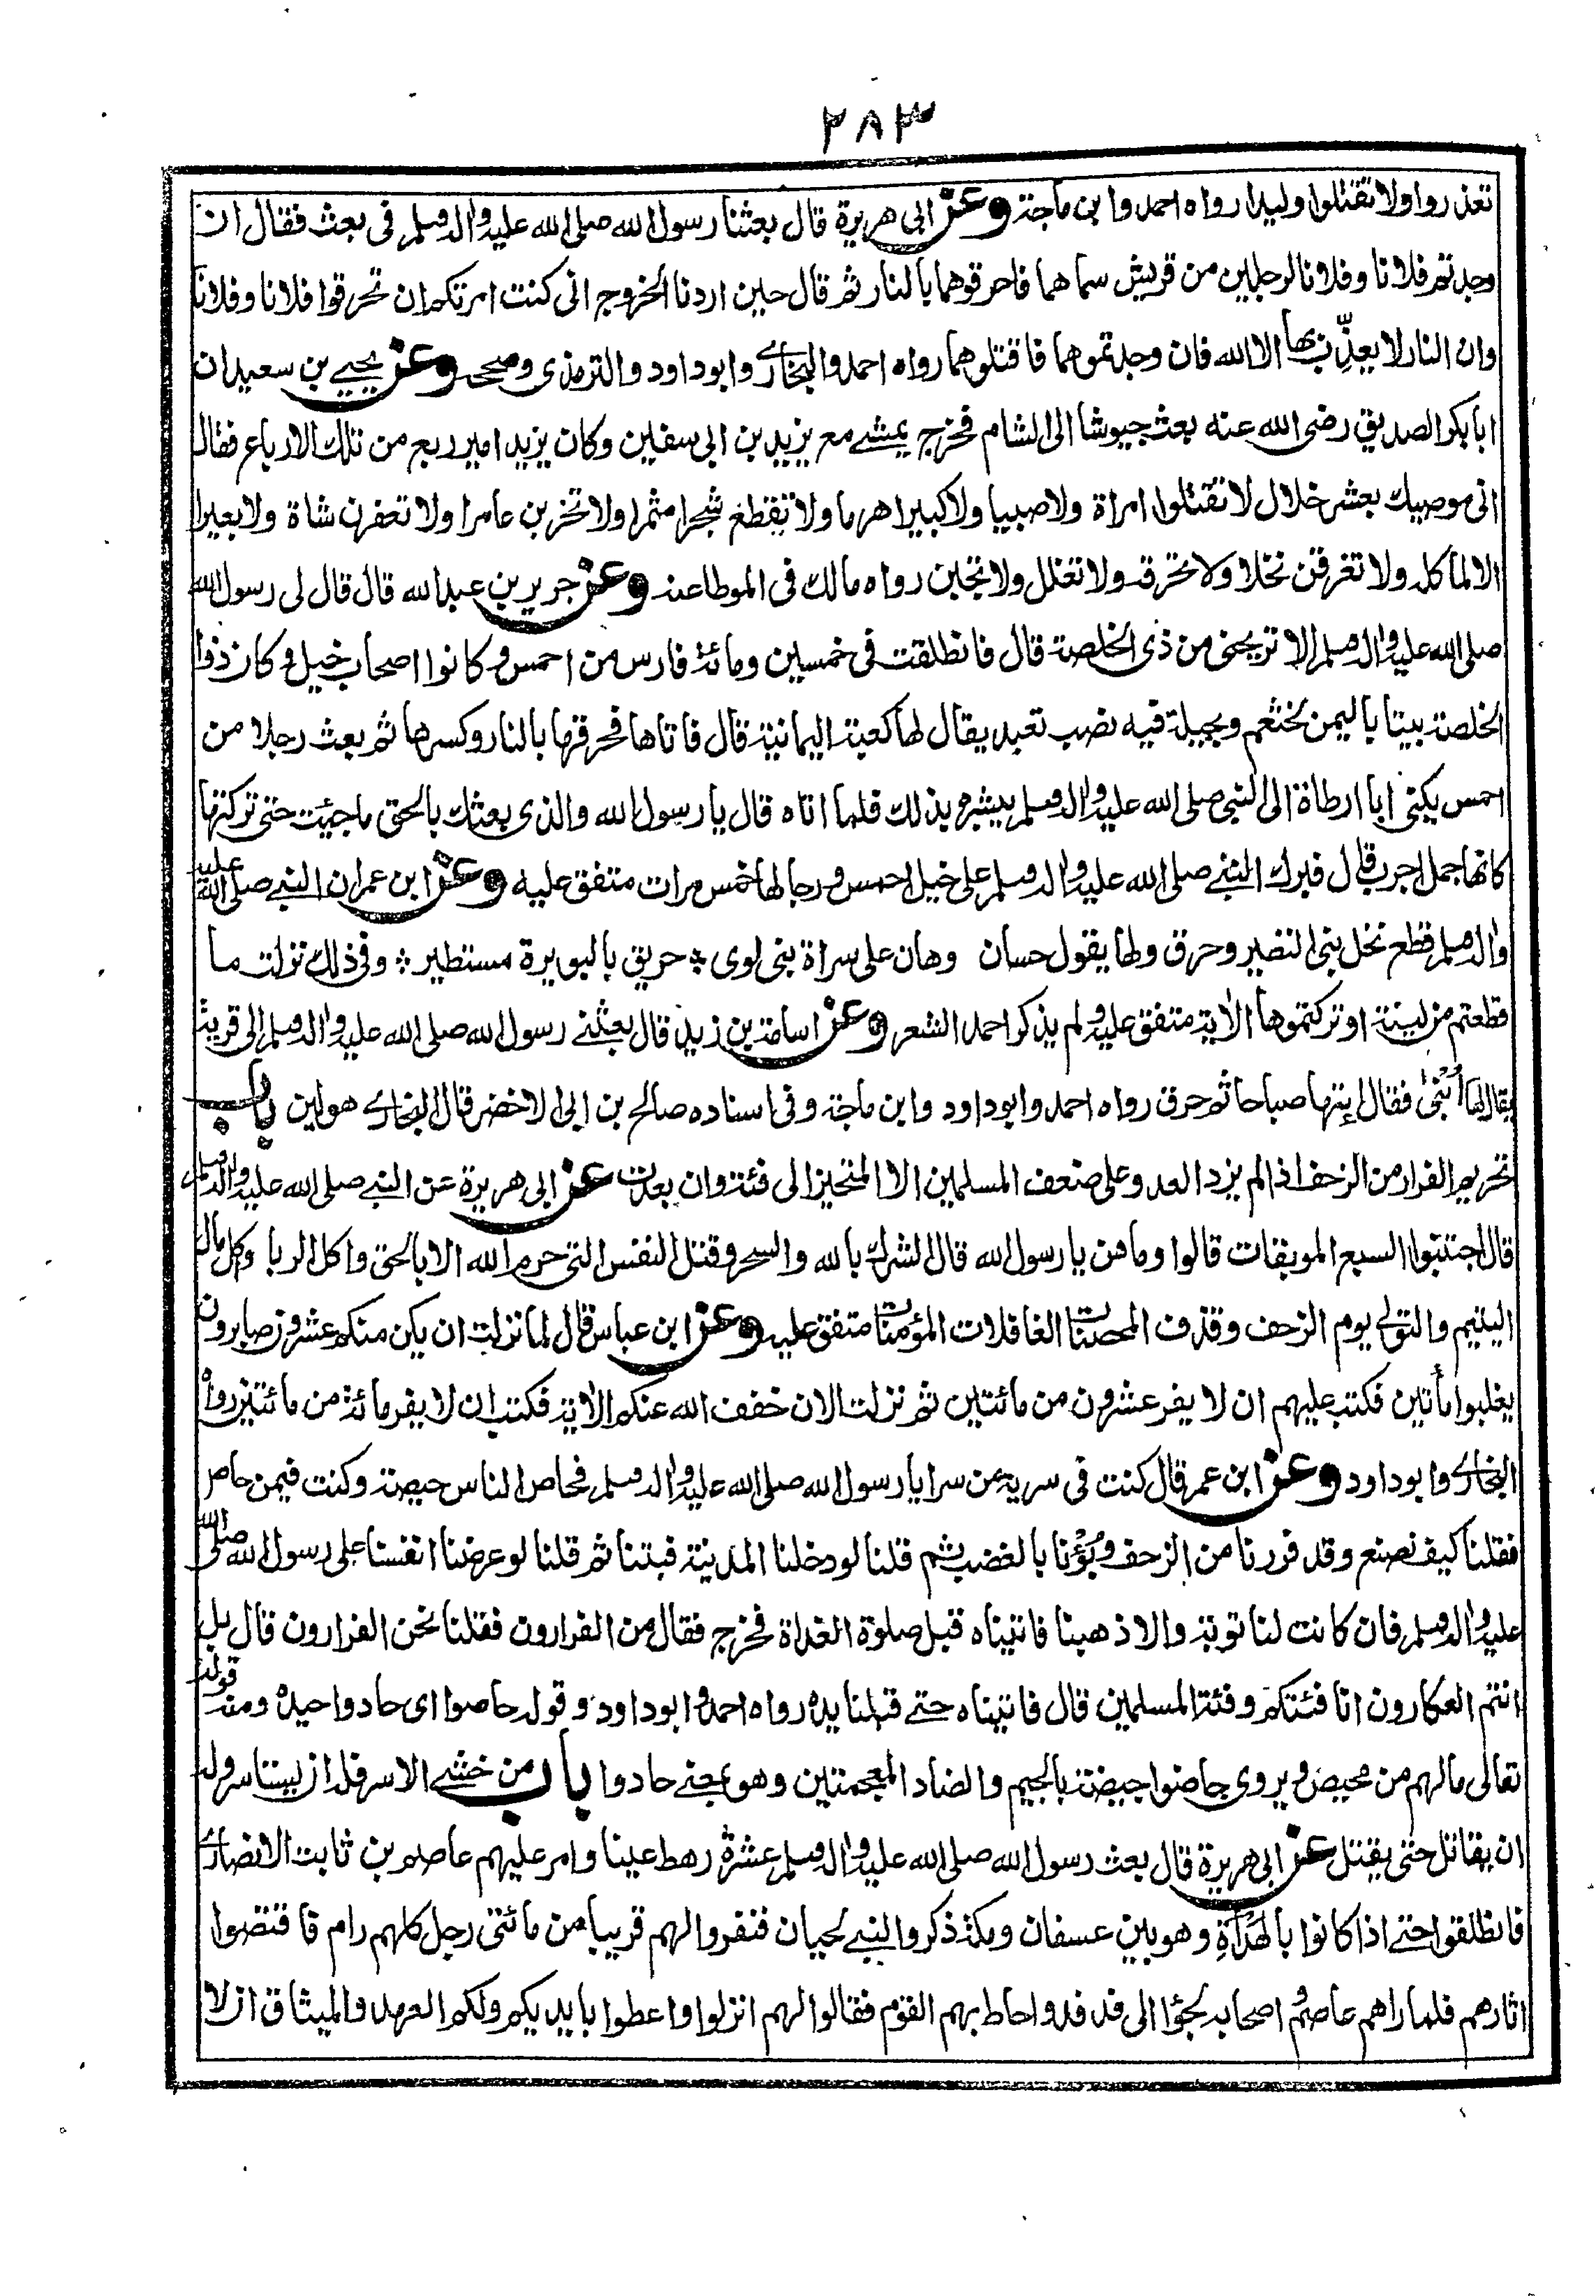 ٢٨٣
تغدروا ولا تقتلوا وليدا رواه احمد وابن ماجة وعن ابى هريرة قال بعثنا رسول الله صلى الله عليه واله وسلم فى بعث فقال ان
وجدتم فلانا وفلانا لرجلين من قريش سماهما فاحرقوهما بالنار ثم قال حين اردنا الخروج انى كنت امرتكم ان تحرقوا فلانا وفلانا
وان النار لا يعذِّب بها الا الله فان وجدتموهما فاقتلوهما رواه احمد والبخارى وابو داود والترمذى وصححه وعن يحيى بن سعيد ان
ابا بكر الصديق رضى الله عنه بعث جيوشا الى الشام فخرج يمشى مع يزيد بن ابى سفين وكان يزيد امير ربع من تلك الارباع فقال
انى موصيك بعشر خلال لا تقتلوا امراة ولا صبيا ولا كبيرا هرما ولا تقطع شجرا مثمرا ولا تخربن عامرا ولا تعقرن شاة ولا بعيرا
الا لماكله ولا تغرقن نخلا ولا تحرقه ولا تغلل ولا تجبن رواه مالك فى الموطا عنه وعن جرير بن عبد الله قال قال لى رسول الله
صلى الله عليه واله وسلم الا تريحنى من ذى الخلصة قال فانطلقت فى خمسين ومائة فارس من احمس وكانوا اصحاب خيل وكان ذوا
الخلصة بيتا باليمن لخثعم وبجيلة فيه نصب تعبد يقال لها كعبة اليمانية قال فاتاها فحرقها بالنار وكسرها ثم بعث رجلا من
احمس يكنى ابا ارطاة الى النبى صلى الله عليه واله وسلم يبشره بذلك فلما اتاه قال يا رسول الله والذى بعثك بالحق ما جئت حتى تركتها
كانها جمل اجرب قال فبرك النبى صلى الله عليه واله وسلم على خيل احمس ورجالها خمس مرات متفق عليه وعن ابن عمر ان النبى صلى الله عليه
واله وسلم قطع نخل بنى النضير وحرق ولها يقول حسان وهان على سراة بنى لوى ؞ حريق بالبويرة مستطير ؞ وفى ذلك نزلت ما
قطعتم من لينة او تركتموها الاية متفق عليه ولم يذكر احمد الشعر وعن اسامة بن زيد قال بعثنى رسول الله صلى الله عليه واله وسلم الى قرية
يقال لها اُبْنىٰ فقال ايتها صباحا ثم حرق رواه احمد وابو داود وابن ماجة وفى اسناده صالح بن ابى الاخضر قال البخارى هو لين باب
تحريم الفرار من الزحف اذا لم يزد العدو على ضعف المسلمين الا المتحيز الى فئة وان بعدت عن ابى هريرة عن النبى صلى الله عليه واله وسلم
قال اجتنبوا السبع الموبقات قالوا وما هن يا رسول الله قال الشرك بالله والسحر وقتل النفس التى حرم الله الا بالحق واكل الربا واكل مال
اليتيم والتولى يوم الزحف وقذف المحصنات الغافلات المؤمنات متفق عليه وعن ابن عباس قال لما نزلت ان يكن منكم عشرون صابرون
يغلبوا مأتين فكتب عليهم ان لا يفر عشرون من مائتين ثم نزلت الان خفف الله عنكم الاية فكتب ان لا يفر مائة من مائتين رواه
البخارى وابو داود وعن ابن عمر قال كنت فى سرية من سرايا رسول الله صلى الله عليه واله وسلم فحاص الناس حيصة وكنت فيمن حاص
فقلنا كيف نصنع وقد فررنا من الزحف وبُؤْنا بالغضب ثم قلنا لو دخلنا المدينة فبتنا ثم قلنا لو عرضنا انفسنا على رسول الله صلى الله
عليه واله وسلم فان كانت لنا توبة والا ذهبنا فاتيناه قبل صلوة الغداة فخرج فقال من الفرارون فقلنا نحن الفرارون قال بل
انتم العكارون انا فئتكم وفئة المسلمين قال فاتيناه حتى قبلنا يده رواه احمد وابو داود وقوله حاصوا اى حادوا حيدة ومنه قوله
تعالى ما لهم من محيص ويروى جاضوا جيضة بالجيم والضاد المعجمتين وهو بمعنى حادوا باب من خشى الاسر فله ان يستاسر وله
ان يقاتل حتى يقتل عن ابى هريرة قال بعث رسول الله صلى الله عليه واله وسلم عشرة رهط عينا وامر عليهم عاصم بن ثابت الانصارى
فانطلقوا حتى اذا كانوا بالهَدْأةِ وهو بين عسفان ومكة ذكروا لبنى لحيان فنفروا لهم قريبا من مائتى رجل كلهم رام فاقتصوا
اثارهم فلما راهم عاصم واصحابه لجئوا الى فدفد واحاط بهم القوم فقالوا لهم انزلوا واعطوا بايديكم ولكم العهد والميثاق ان لا